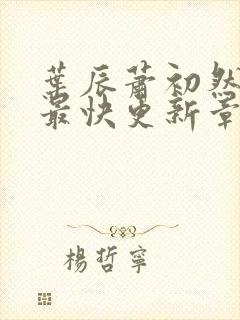 葉辰蕭初然
最快更新章
楊哲寧